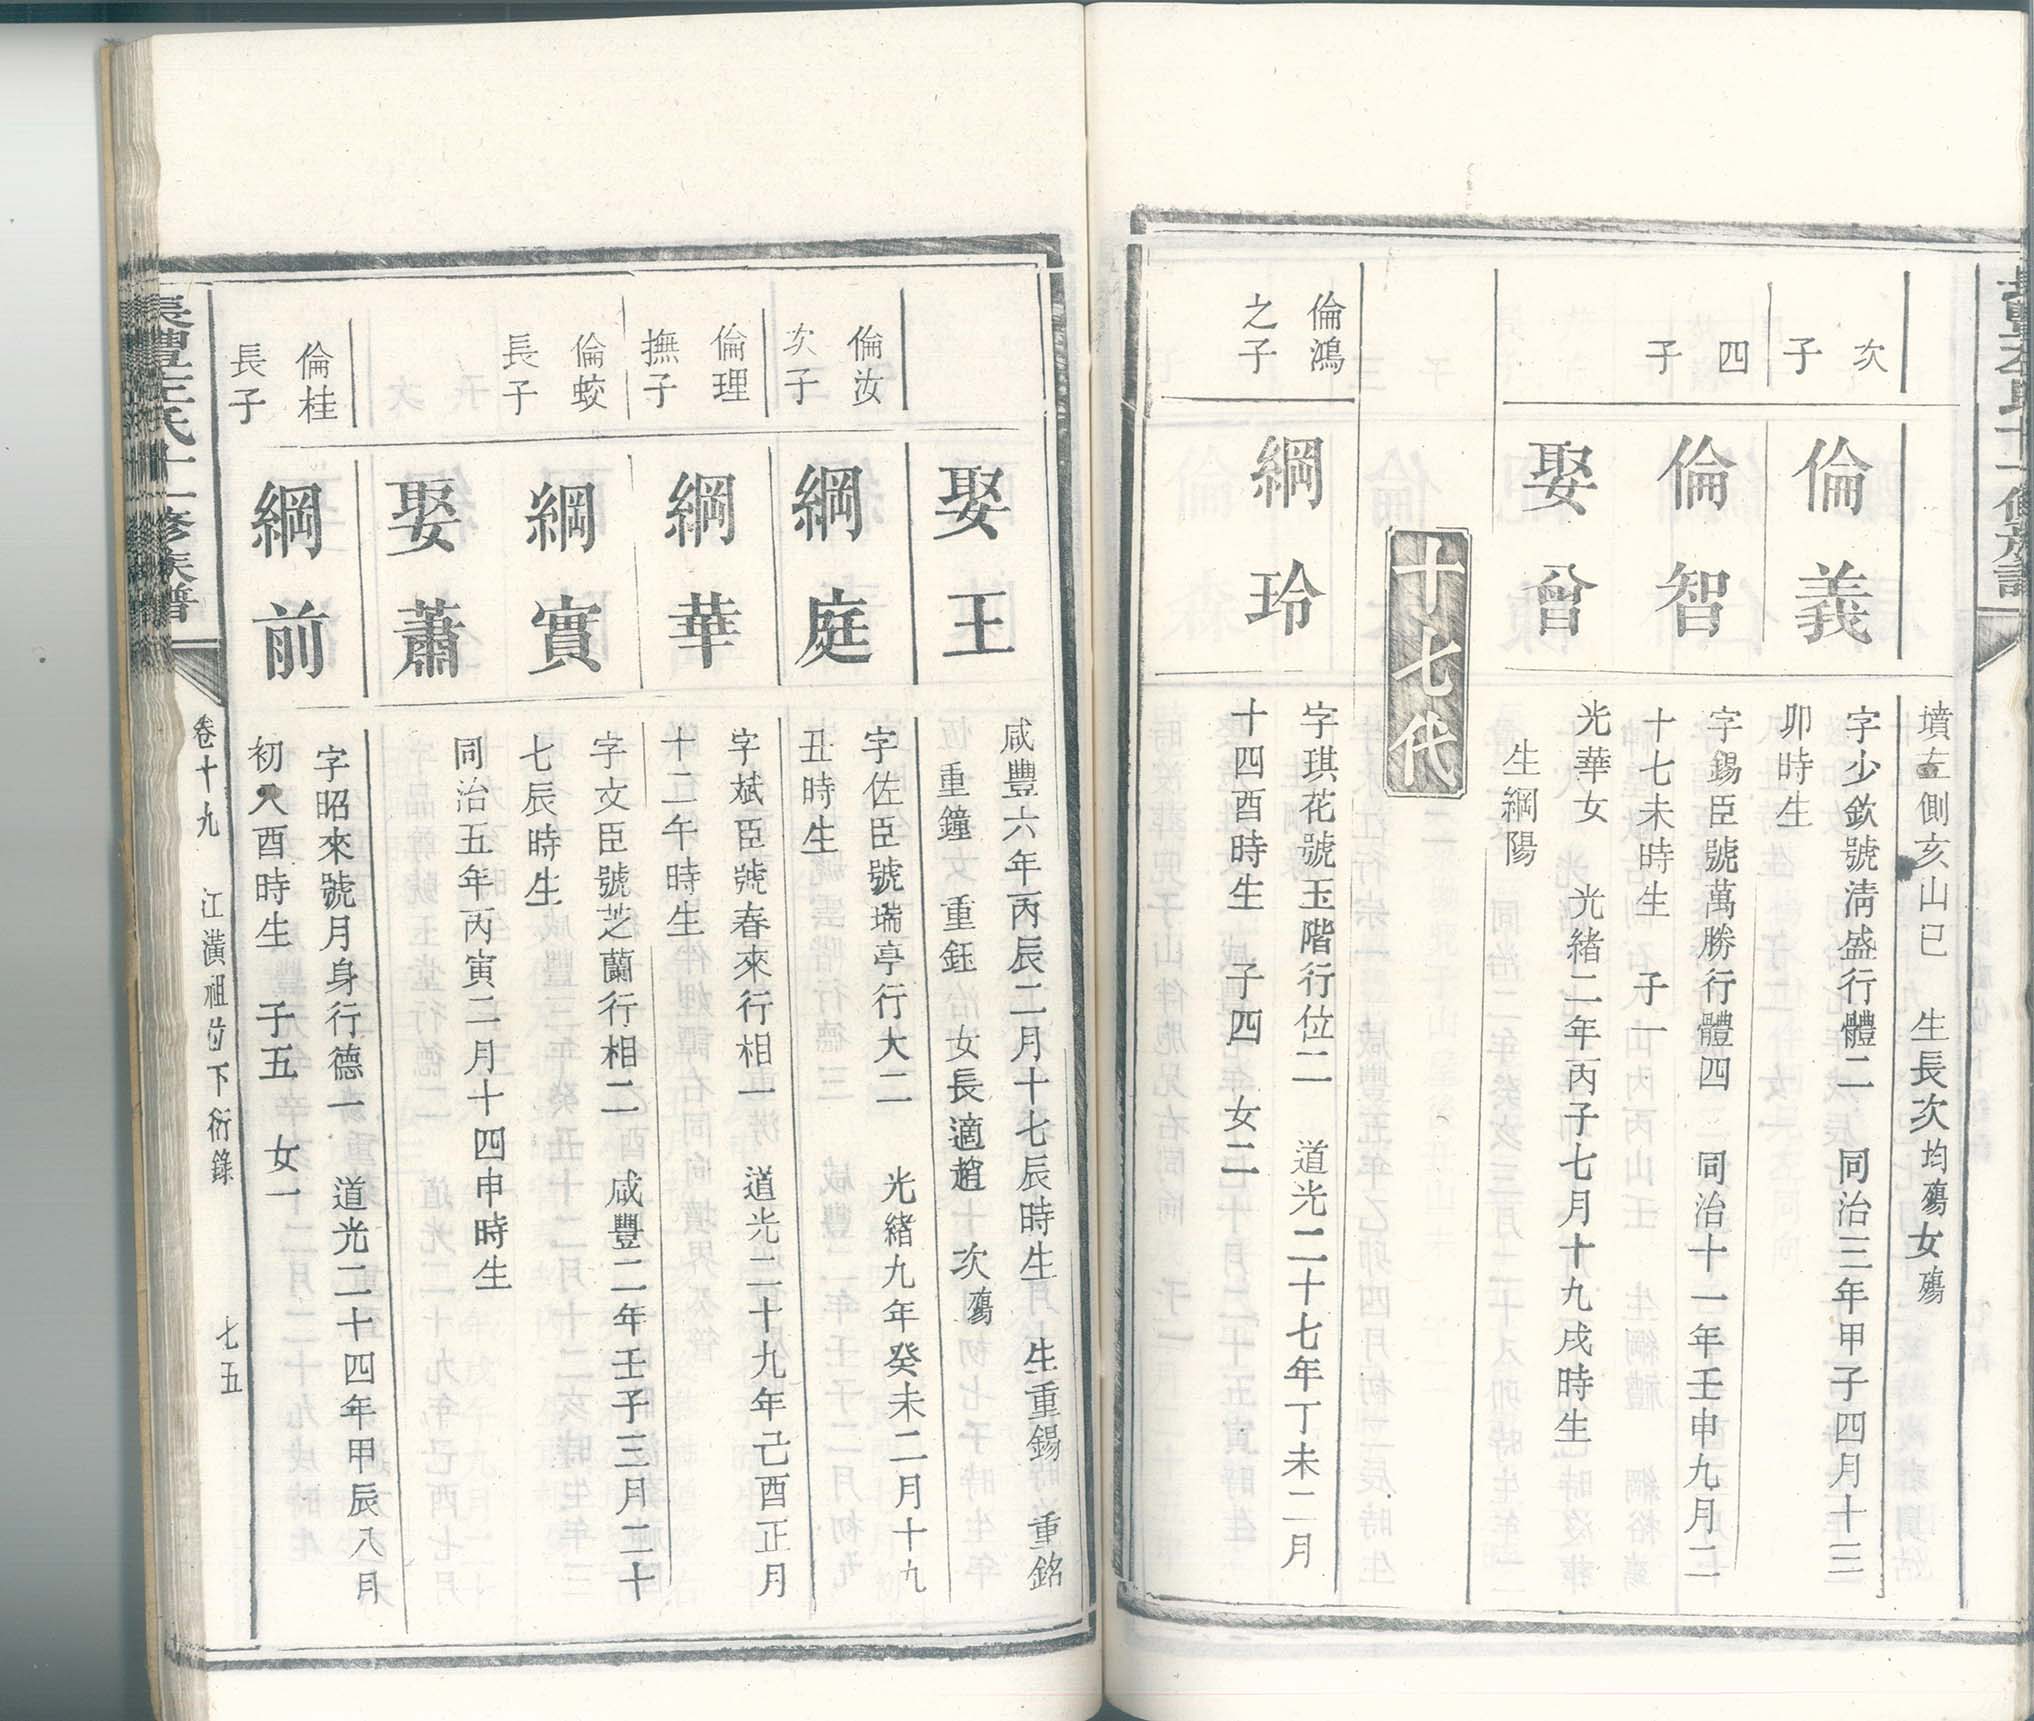 墳左側亥山巳　生長次均殤女殤
次子
倫義
字少欽號淸盛行體二　同治三年甲子四月十三
卯時生
四子
倫智
字錫臣號萬勝行體四　同治十一年壬申九月二
十七未時生　子一
娶曾
光華女　光緒二年丙子七月十九戌時生
生綱陽
十七代
倫鴻之子
綱玲
字琪花號玉階行位二　道光二十七年丁未二月
十四酉時生　子四　女二
娶王
咸豐六年丙辰二月十七辰時生　生重錫　重銘
重鐘　重鈺　女長適趙　次殤
倫汝次子
綱庭
字佐臣號瑞亭行大二　光緒九年癸未二月十九
丑時生
倫理撫子
綱華
字斌臣號春來行相一　道光二十九年己酉正月
十二午時生
倫蛟長子
綱實
字文臣號芝蘭行相二　咸豐二年壬子三月二十
七辰時生
娶蕭
同治五年丙寅二月十四申時生
倫桂長子
綱前
字昭來號月身行德一　道光二十四年甲辰八月
初八酉時生　子五　女一
氏十一修族譜
卷十九　江潢祖位下衍錄　七五